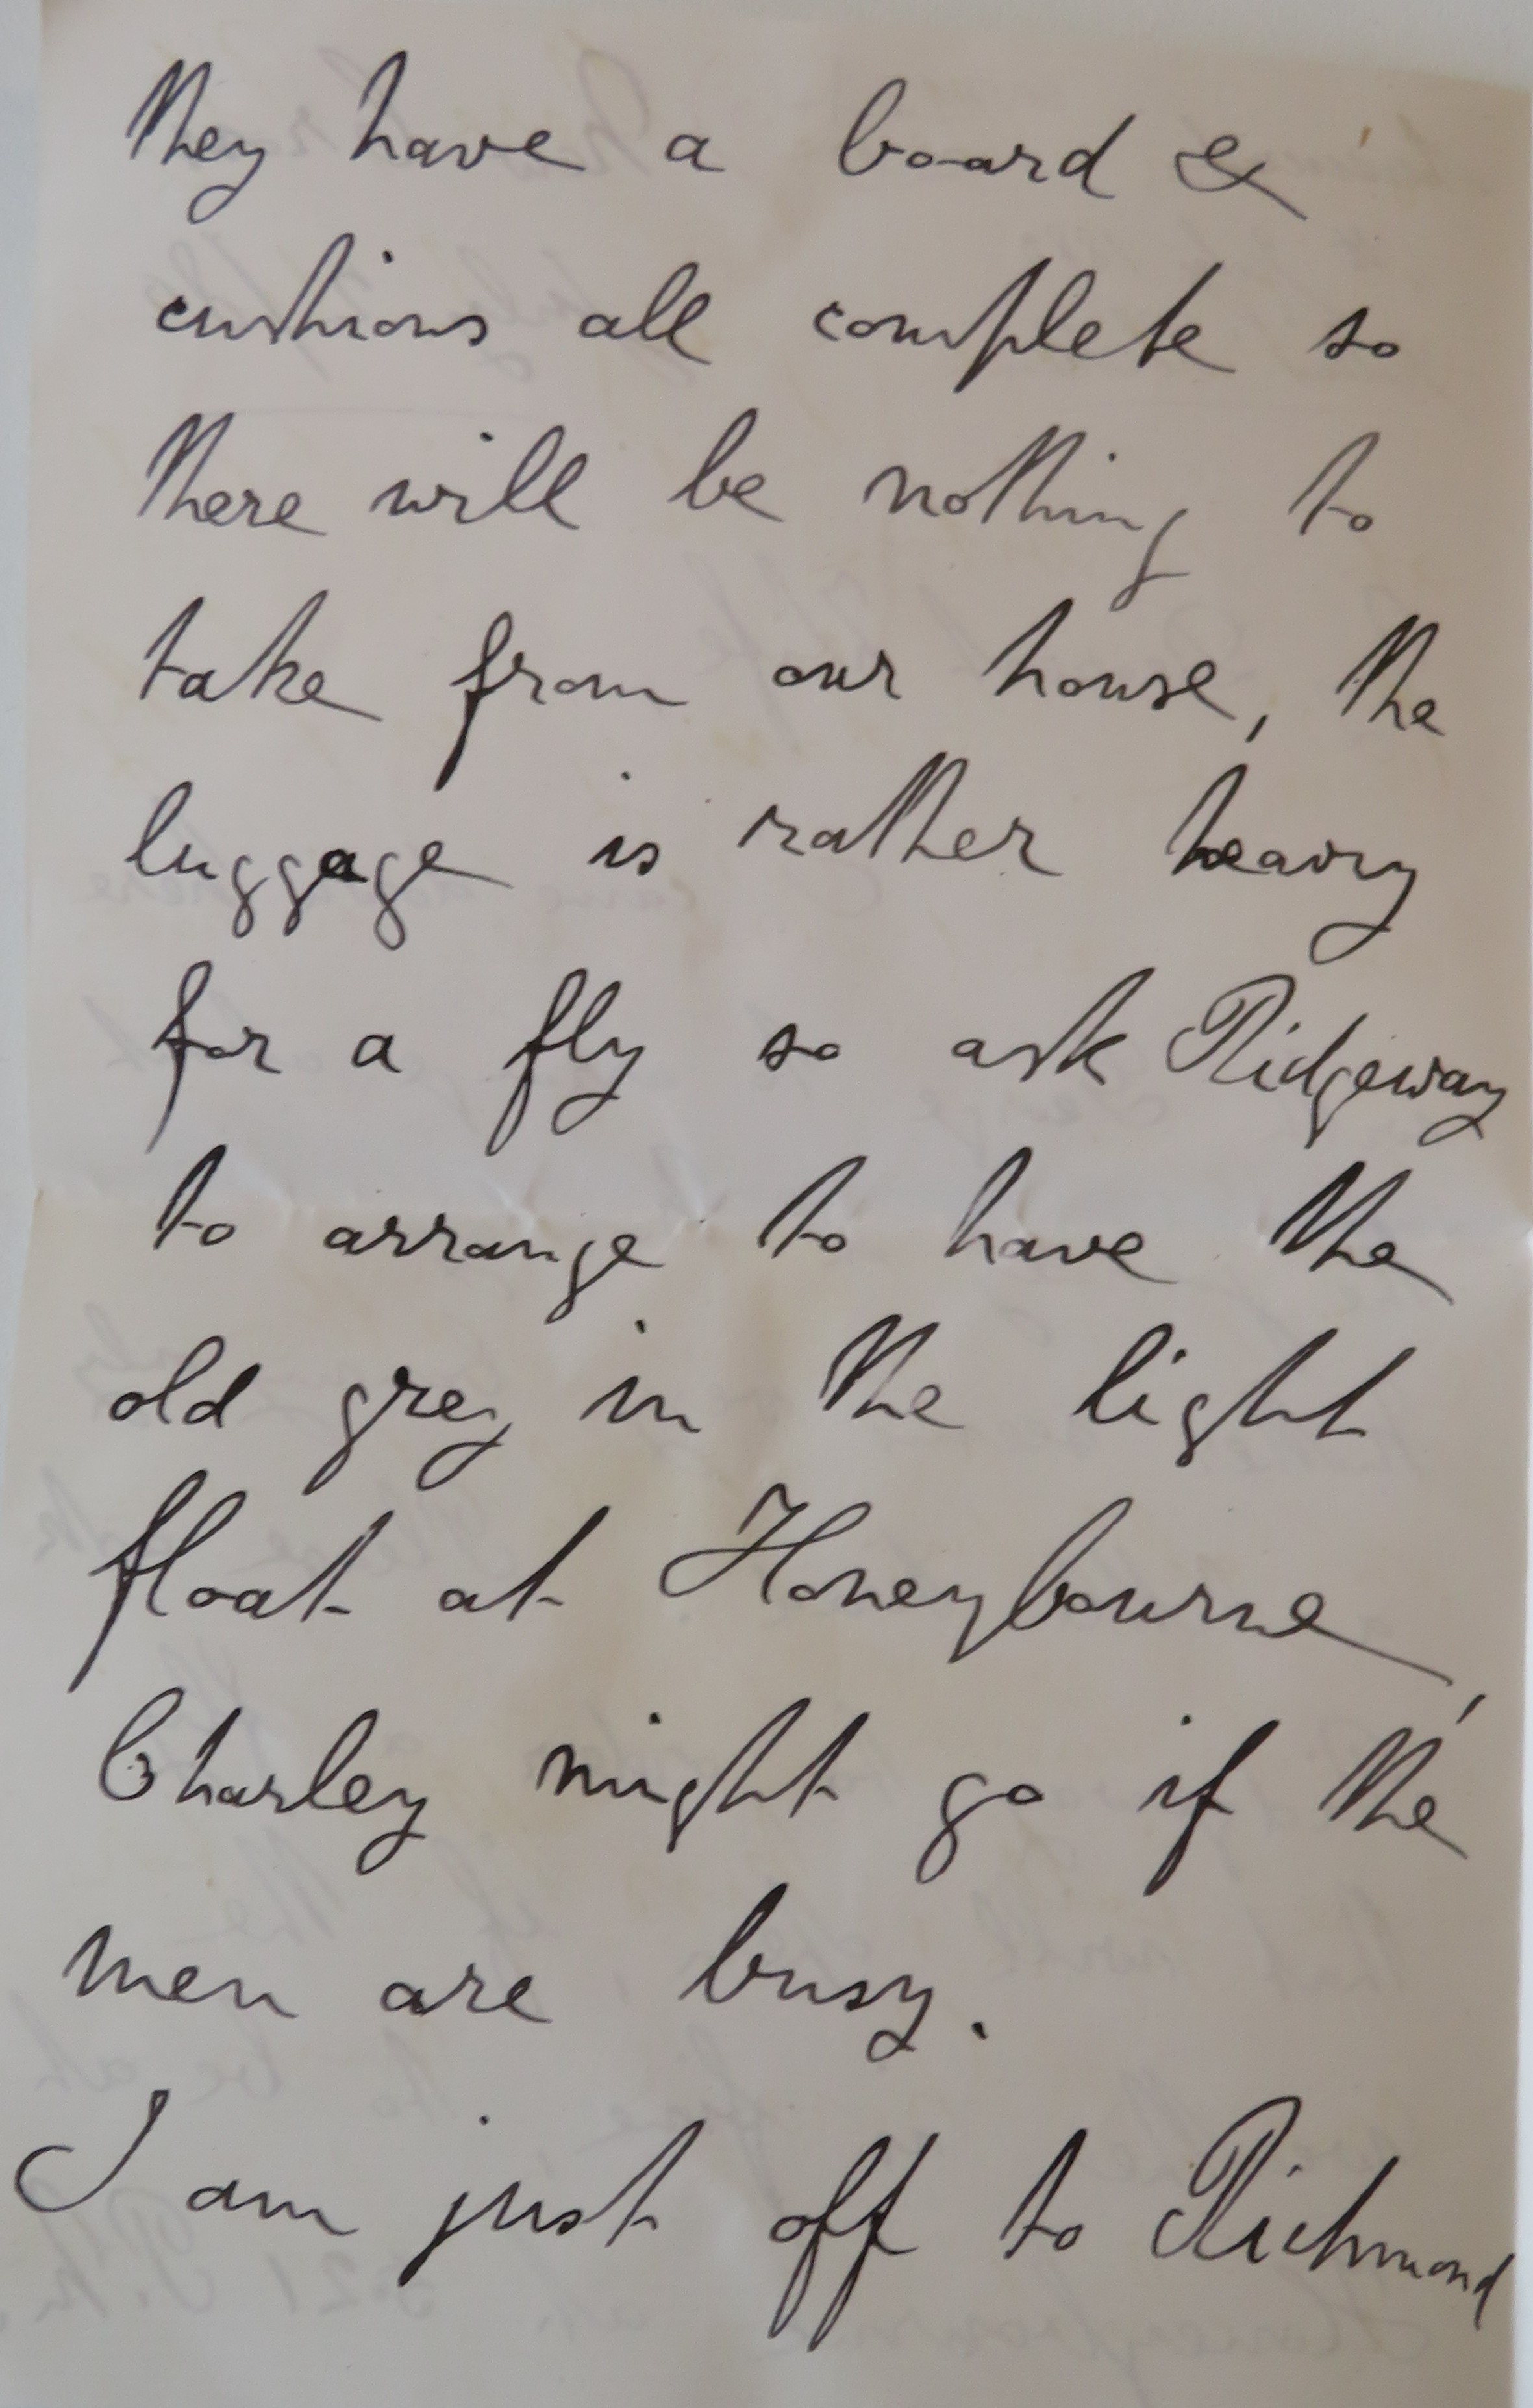 they have a board &
cushions all complete so
there will be nothing to
take from our house, the
luggage is rather heavy
for a fly so ask Ridgeway
to arrange to have the
old grey in the light
float at Honeybourne,
Charley might go if the
men are busy.
I am just off to Richmond